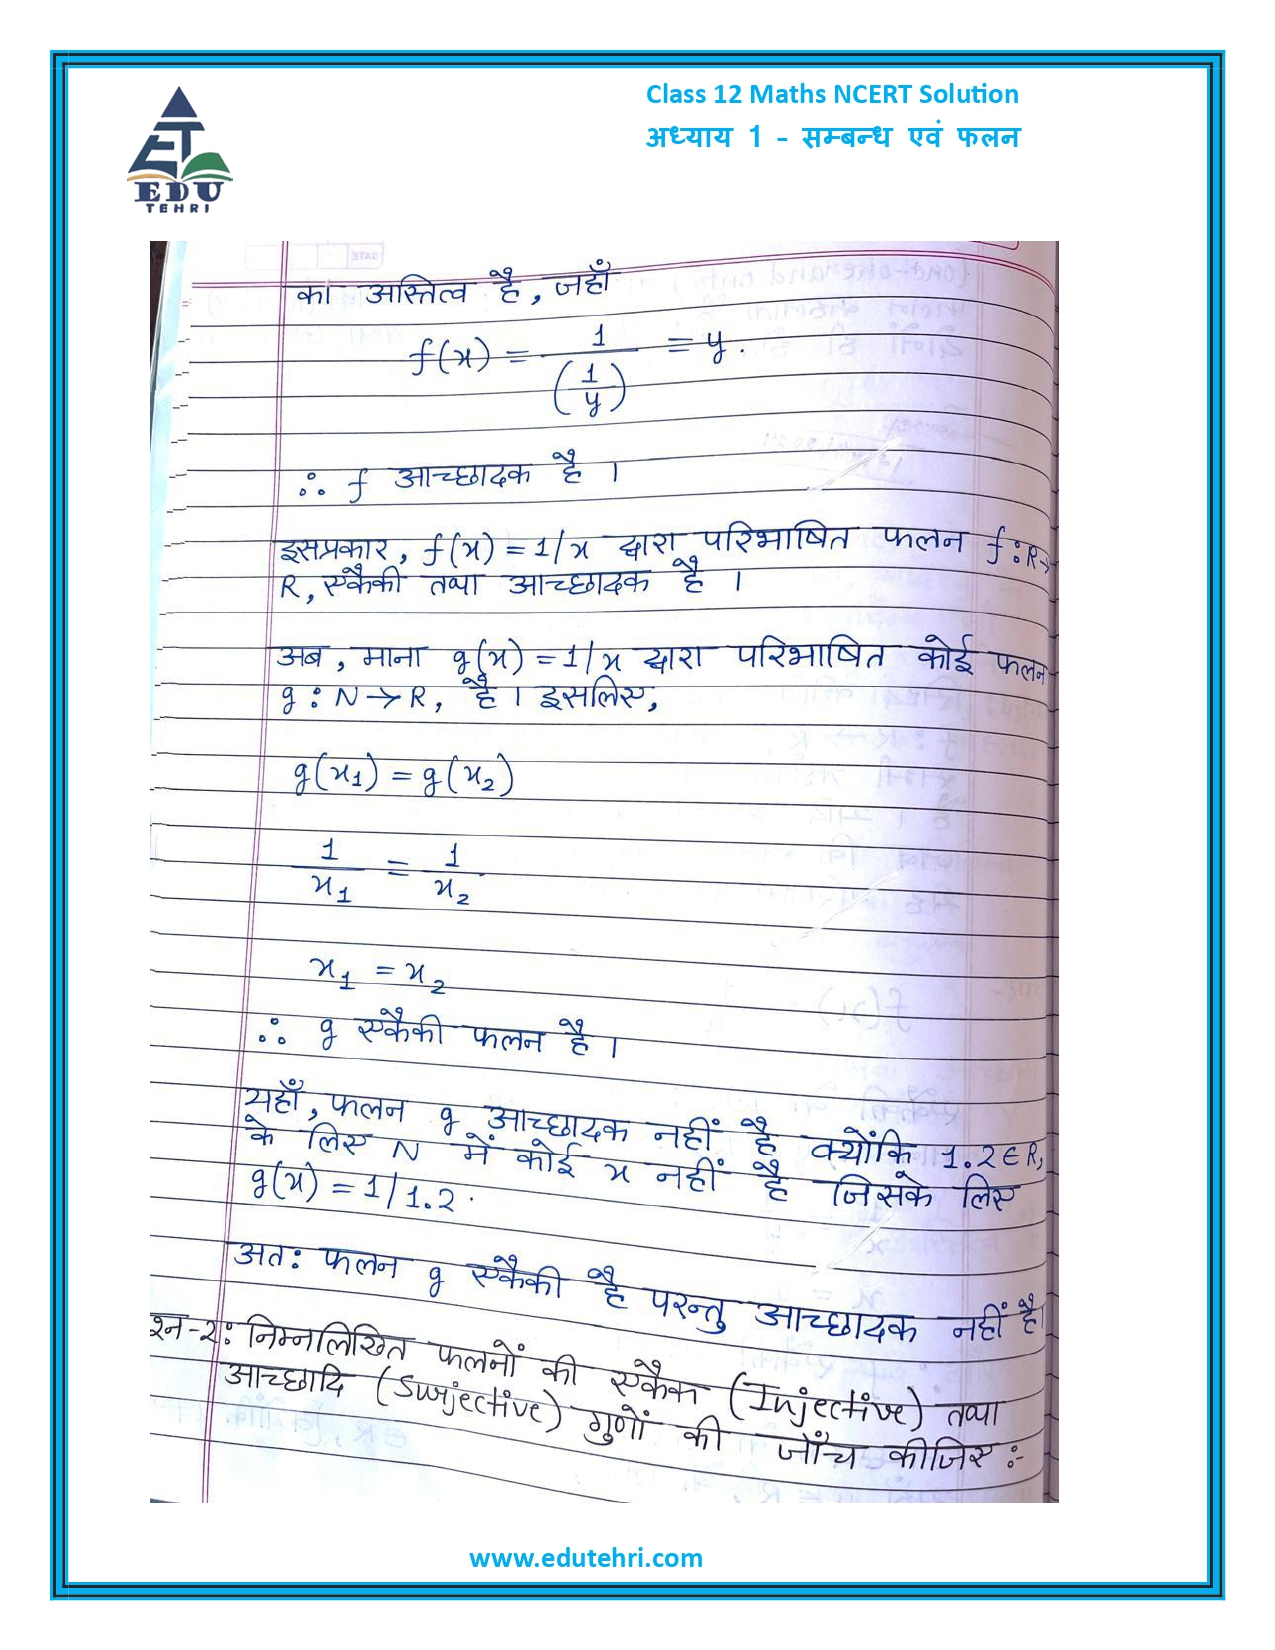 Class 12 Maths NCERT Solution
अध्याय 1 - सम्बन्ध एवं फलन
ET
EDU
TEHRI
DATE
का अस्तित्व है, जहाँ
f(x) = 1/(1/y) = y.
∴ f आच्छादक है ।
इसप्रकार, f(x) = 1/x द्वारा परिभाषित फलन f:R→
R, एकैकी तथा आच्छादक है ।
अब, माना g(x) = 1/x द्वारा परिभाषित कोई फलन
g : N → R, है । इसलिए,
g(x₁) = g(x₂)
1/x₁ = 1/x₂
x₁ = x₂
∴ g एकैकी फलन है ।
यहाँ, फलन g आच्छादक नहीं है क्योंकि 1.2 ∈ R,
के लिए N में कोई x नहीं है जिसके लिए
g(x) = 1/1.2.
अतः फलन g एकैकी है परन्तु आच्छादक नहीं है
श्न-२: निम्नलिखित फलनों की एकैक (Injective) तथा
आच्छादि (Surjective) गुणों की जाँच कीजिए :-
www.edutehri.com